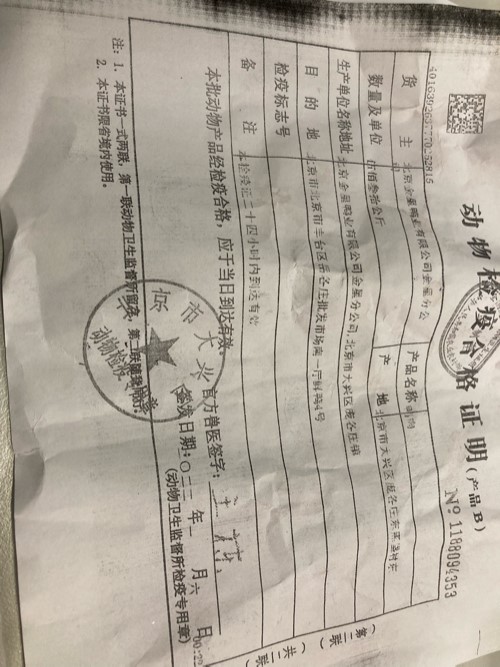 动物检疫合格证明(产品B)
№ 1188094353
货主 北京金星鸭业有限公司金星分公司
产品名称
数量及单位 伍佰叁拾公斤
产地 北京市大兴区庞各庄
生产单位名称地址 北京金星鸭业有限公司金星分公司,北京市大兴区庞各庄镇
目的地 北京市北京市丰台区岳各庄批发市场南一厅
检疫标志号
备注 本检疫证二十四小时内到达有效
本批动物产品经检疫合格,应于当日到达有效。
官方兽医签字:
签发日期:二〇二二年一月六日
(动物卫生监督所检疫专用章)
注:1. 本证书一式两联,第一联动物卫生监督所留存,第二联随货同行。
2. 本证书限省境内使用。
(第二联)
(共二联)
市大兴
动物检疫